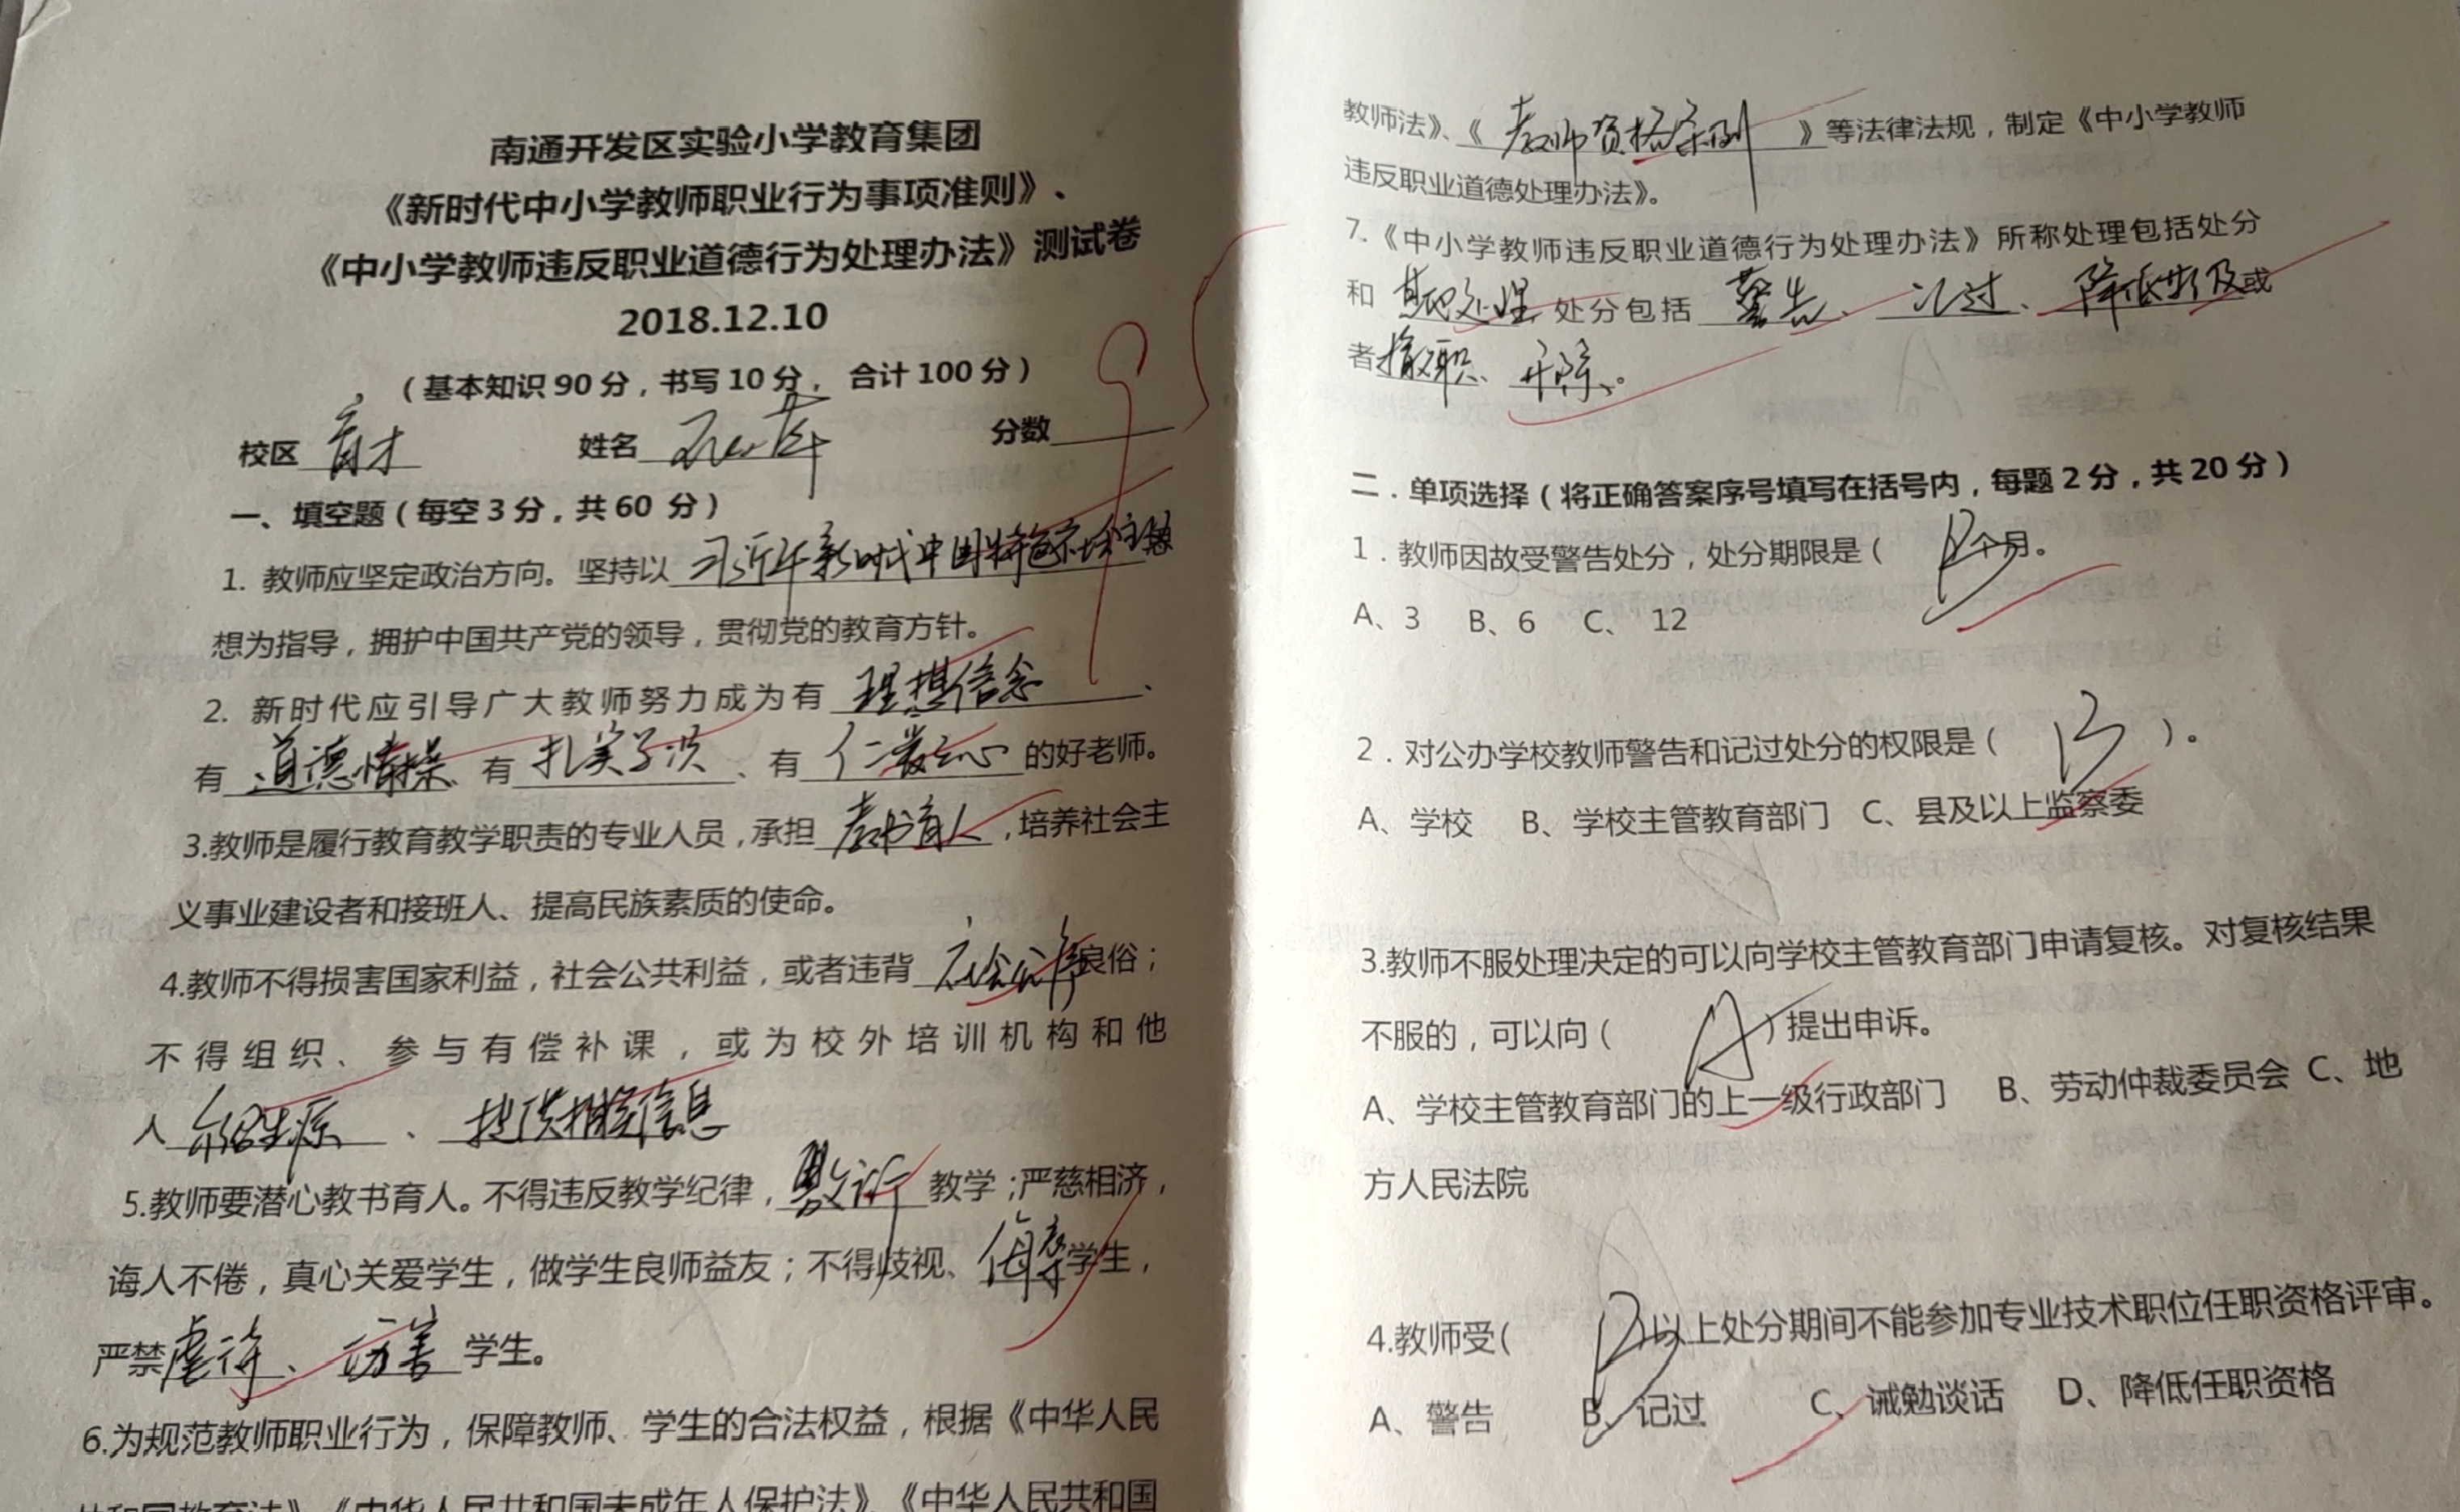 南通开发区实验小学教育集团
《新时代中小学教师职业行为事项准则》、
《中小学教师违反职业道德行为处理办法》测试卷
2018.12.10
（基本知识90分，书写10分， 合计100分）
校区 育才 姓名 分数
95
一、填空题（每空3分，共60 分）
1. 教师应坚定政治方向。坚持以 习近平新时代中国特色社会主义思
想为指导，拥护中国共产党的领导，贯彻党的教育方针。
2. 新时代应引导广大教师努力成为有 理想信念 、
有 道德情操、有 扎实学识 、有 仁爱之心 的好老师。
3.教师是履行教育教学职责的专业人员，承担 教书育人 ，培养社会主
义事业建设者和接班人、提高民族素质的使命。
4.教师不得损害国家利益，社会公共利益，或者违背 社会公序良俗；
不得组织、参与有偿补课，或为校外培训机构和他
人 介绍生源 、 提供相关信息
5.教师要潜心教书育人。不得违反教学纪律， 敷衍 教学；严慈相济，
诲人不倦，真心关爱学生，做学生良师益友；不得歧视、侮辱学生，
严禁虐待、 伤害 学生。
6.为规范教师职业行为，保障教师、学生的合法权益，根据《中华人民
共和国教育法》《中华人民共和国未成年人保护法》《中华人民共和国
教师法》、《 教师资格条例 》等法律法规，制定《中小学教师
违反职业道德处理办法》。
7.《中小学教师违反职业道德行为处理办法》所称处理包括处分
和 其他处理 处分包括 警告 、 记过 、 降低等级或
者撤职、 开除、。
二．单项选择（将正确答案序号填写在括号内，每题2分，共20分）
1．教师因故受警告处分，处分期限是（ B 个月。
A、3 B、6 C、 12
2．对公办学校教师警告和记过处分的权限是（ B ）。
A、学校 B、学校主管教育部门 C、县及以上监察委
3.教师不服处理决定的可以向学校主管教育部门申请复核。对复核结果
不服的，可以向（ A ）提出申诉。
A、学校主管教育部门的上一级行政部门 B、劳动仲裁委员会 C、地
方人民法院
4.教师受（ B ）以上处分期间不能参加专业技术职位任职资格评审。
A、警告 B、记过 C、诫勉谈话 D、降低任职资格